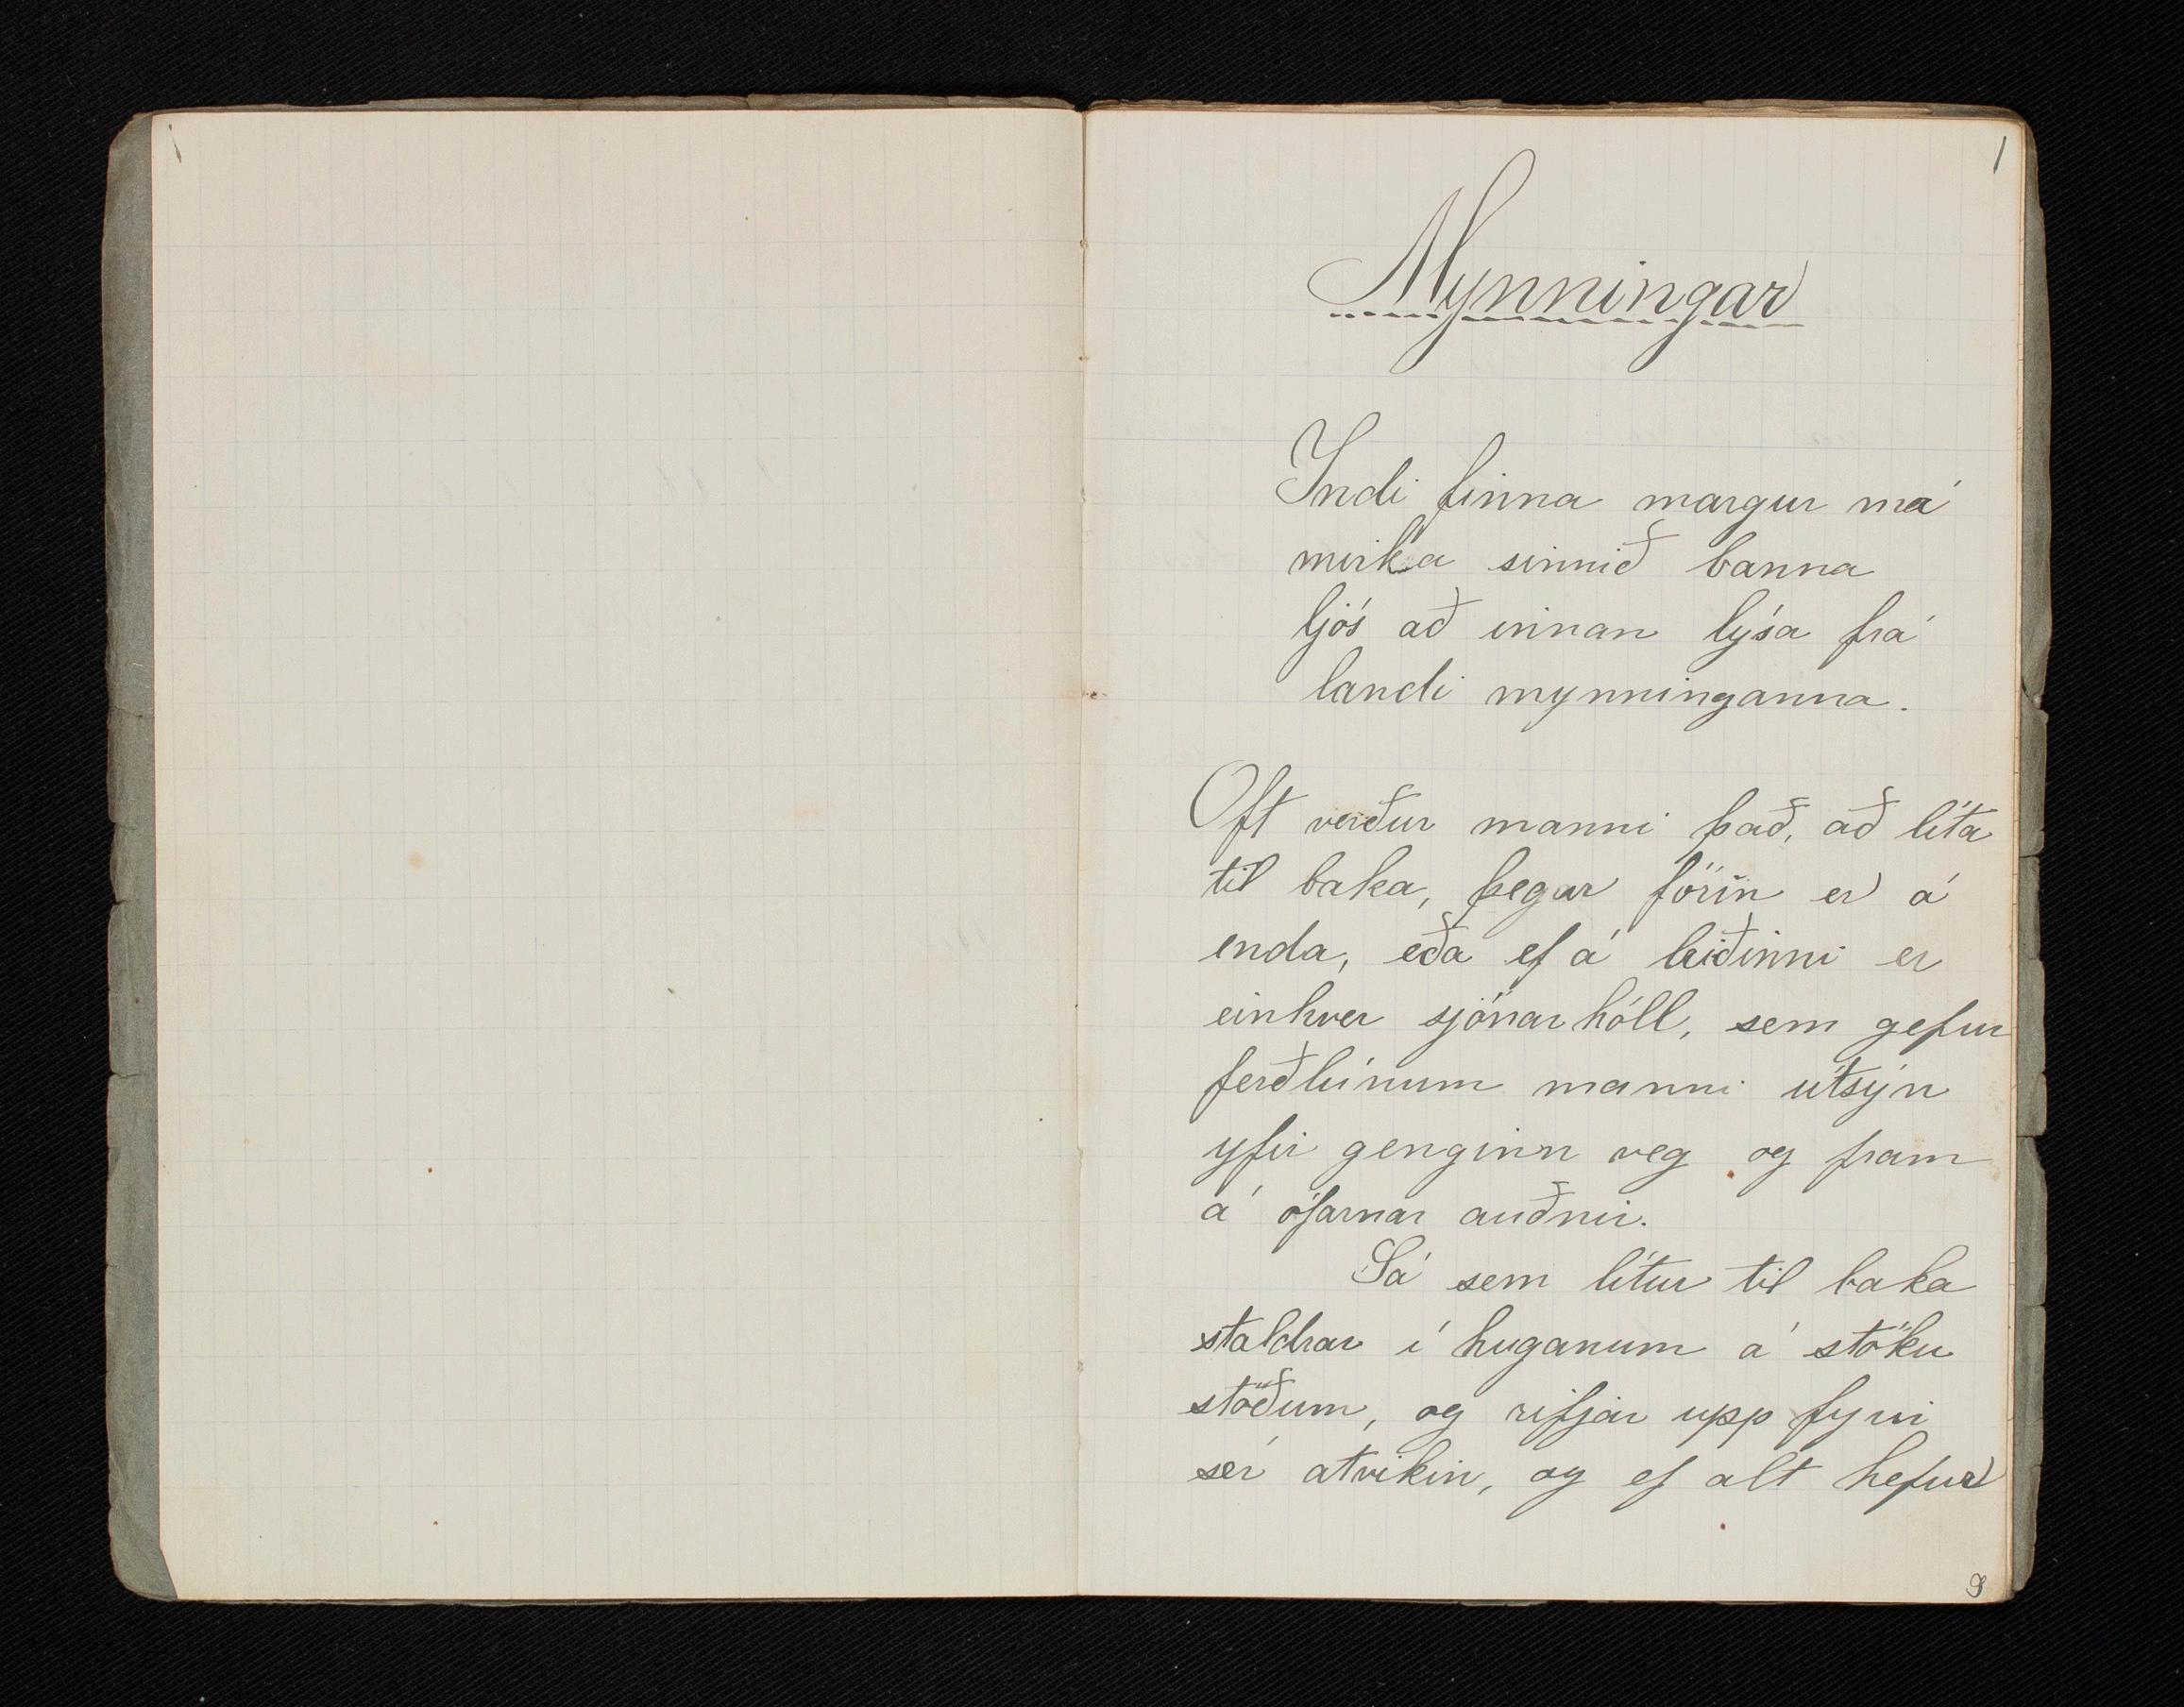 1
Mynningar
Indi finna margur má
mirka sinnið banna
ljós að innan lýsa frá
landi mynninganna.
Oft verður manni það, að líta
til baka, þegar förin er á
enda, eða ef á leiðinni er
einhver sjónarhóll, sem gefur
ferðlúnum manni útsýn
yfir genginn veg og fram
á ófarnar auðnir.
Sá sem lítur til baka
staldrar í huganum á stöku
stöðum, og rifjar upp fyrir
sér atvikin, og ef alt hefur